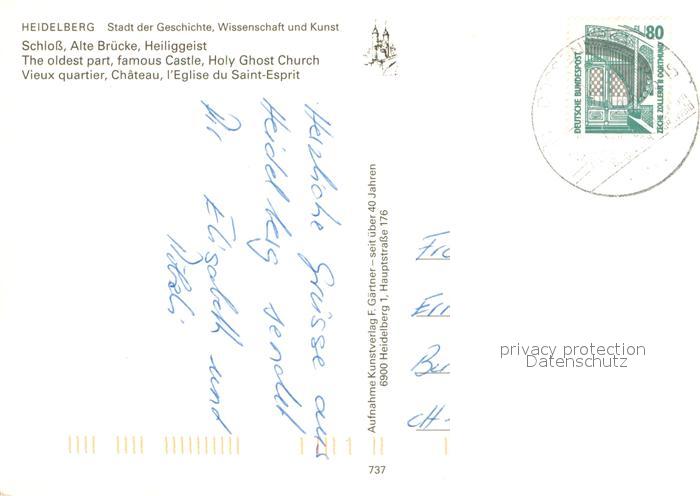 HEIDELBERG Stadt der Geschichte, Wissenschaft und Kunst
Schloß, Alte Brücke, Heiliggeist
The oldest part, famous Castle, Holy Ghost Church
Vieux quartier, Château, l'Eglise du Saint-Esprit
80
DEUTSCHE BUNDESPOST
ZECHE ZOLLERN II DORTMUND
Herzliche Grüsse aus
Heidelberg sendet
Dir Elisabeth und
Aufnahme Kunstverlag F. Gärtner – seit über 40 Jahren
6900 Heidelberg 1, Hauptstraße 176
CH-
privacy protection
Datenschutz
737